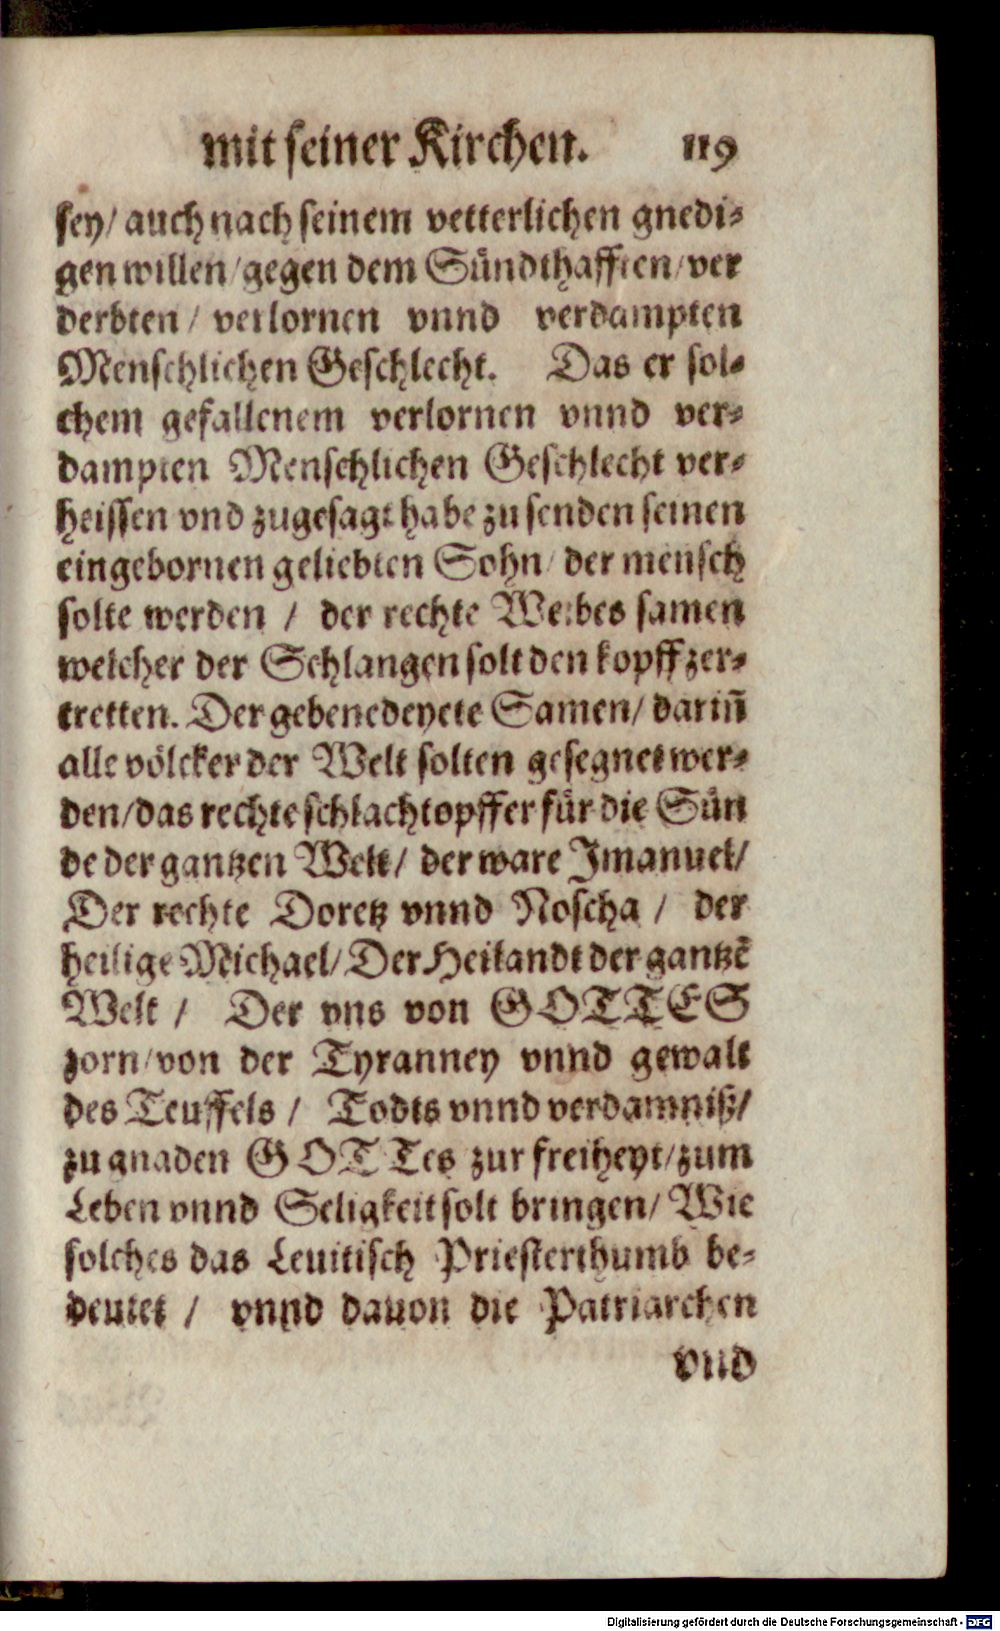 mit seiner Kirchen. 119
sey/ auch nach seinem vetterlichen gnedi-
gen willen/ gegen dem Sündthafften/ ver
derbten / verlornen vnnd verdampten
Menschlichen Geschlecht. Das er sol-
chem gefallenem verlornen vnnd ver-
dampten Menschlichen Geschlecht ver-
heissen vnd zugesagt habe zu senden seinen
eingebornen geliebten Sohn/ der mensch
solte werden / der rechte Weibes samen
welcher der Schlangen solt den kopff zer-
tretten. Der gebenedeyete Samen/ dariñ
alle völcker der Welt solten gesegnet wer-
den/ das rechte schlachtopffer für die Sün
de der gantzen Welt/ der ware Jmanuel/
Der rechte Doretz vnnd Noscha / der
heilige Michael/ Der Heilandt der gantzē
Welt / Der vns von GOTTES
zorn/ von der Tyranney vnnd gewalt
des Teuffels / Todts vnnd verdamniß/
zu gnaden GOTTes zur freiheyt/ zum
Leben vnnd Seligkeit solt bringen/ Wie
solches das Leuitisch Priesterthumb be-
deutet / vnnd dauon die Patriarchen
vnd
Digitalisierung gefördert durch die Deutsche Forschungsgemeinschaft - DFG